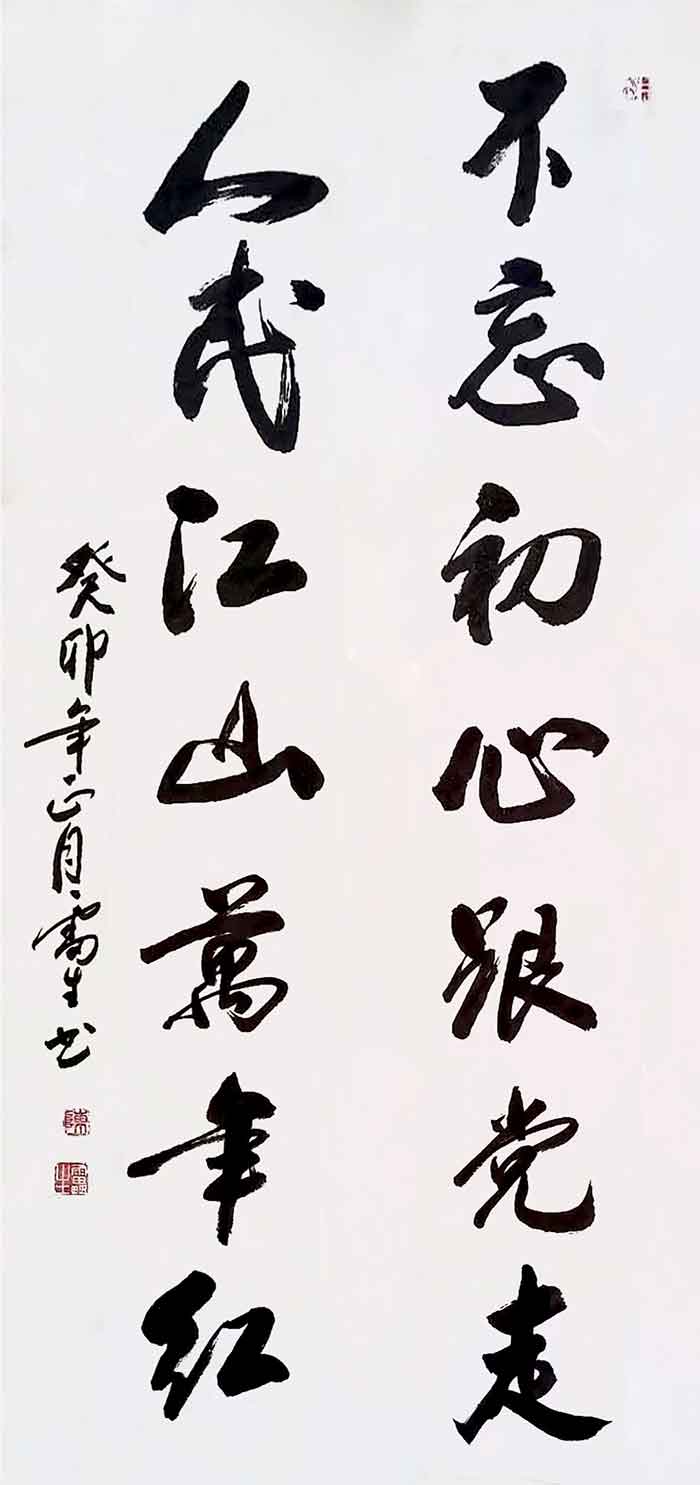 不忘初心跟党走
人民江山萬年红
癸卯年正月霱生书
陳